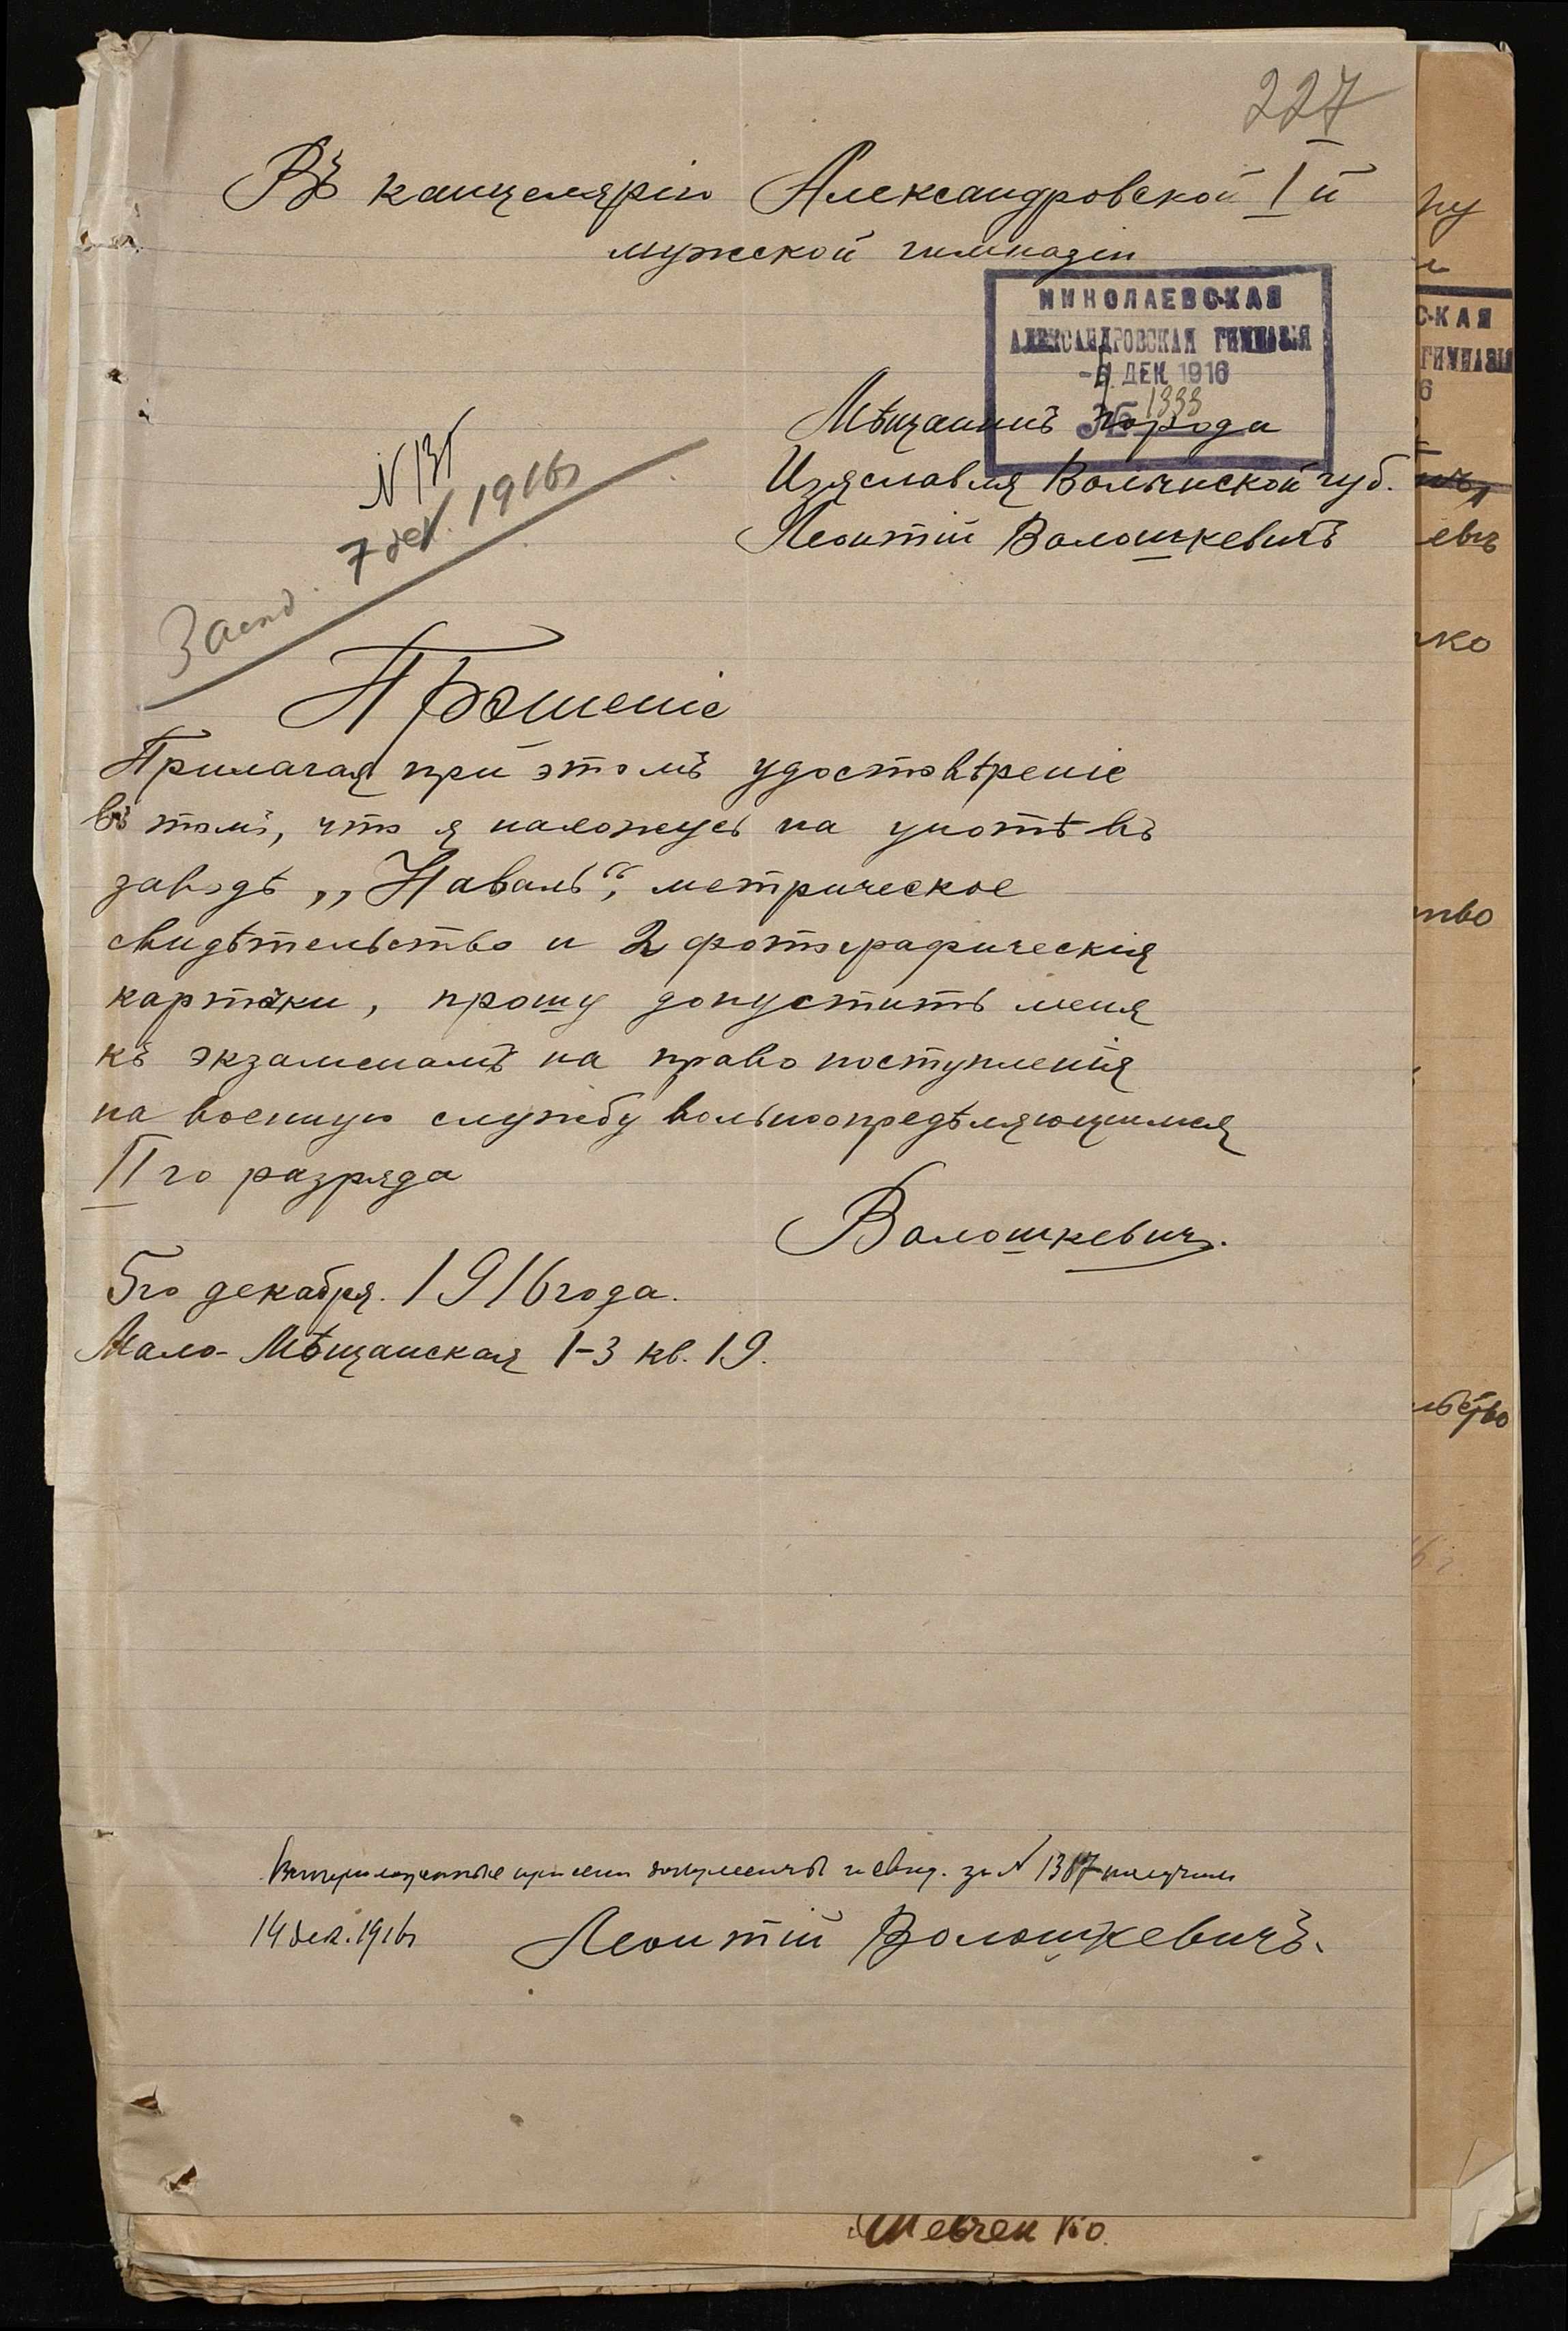 227
Въ канцелярію Александровской I й
мужской гимназіи
НИКОЛАЕВСКАЯ
АЛЕКСАНДРОВСКАЯ ГИМНАЗІЯ
ДЕК 1916
№ 1333
Мѣщанинъ города
Изяславля Волынской губ.
Леонтій Волошкевичъ
7 дек. 1916 г
Прошеніе
Прилагая при этомъ удостовѣреніе
въ томъ, что я нахожусь на учетѣ въ
заводѣ „Наваль“, метрическое
свидѣтельство и 2 фотографическія
карточки, прошу допустить меня
къ экзаменамъ на право поступленія
на военную службу вольноопредѣляющимся
II го разряда
Волошкевичъ.
5го декабря. 1916 года.
Мало-Мѣщанская 1-3 кв. 19.
при семъ документы и свид. за № 1387 получилъ
14 дек. 1916 г
Леонтій Волошкевичъ.
Шевченко.
ну
СКАЯ
ГИМНАЗІЯ
6
евъ
ко
тво